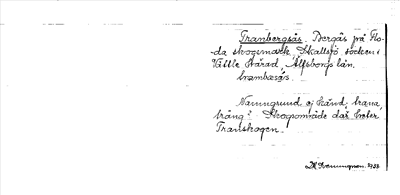 Tranbergsås. Bergås på Ho-
da skogsmark, Skallsjö socken i
Vättle härad, Älfsborgs län.
trambæsås.
Namngrund ej känd, trana,
trång? Skogsområde där heter
Transkogen.
1933